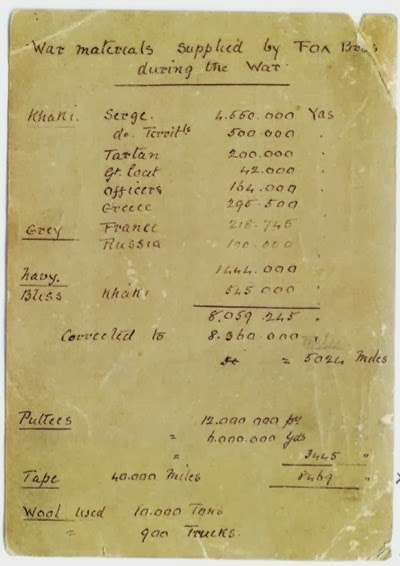 War materials supplied by Fox Bros
during the War
Khaki. Serge. 4.550.000 Yds
do. Territls 500.000 "
Tartan 200.000 "
Gt. Coat 42.000 "
Officers 164.000 "
Greece 295.500 "
Grey France 218.745 "
Russia 100.000 "
Navy. 1444.000 "
Bliss Khaki 545.000 "
8.059.245 "
Corrected to 8.360.000 "
= 5024 Miles
Puttees 12.000.000 prs
" 6.000.000 Yds
" = 3445 "
Tape 40.000 Miles 8469 "
Wool used 10.000 Tons
" 900 Trucks.